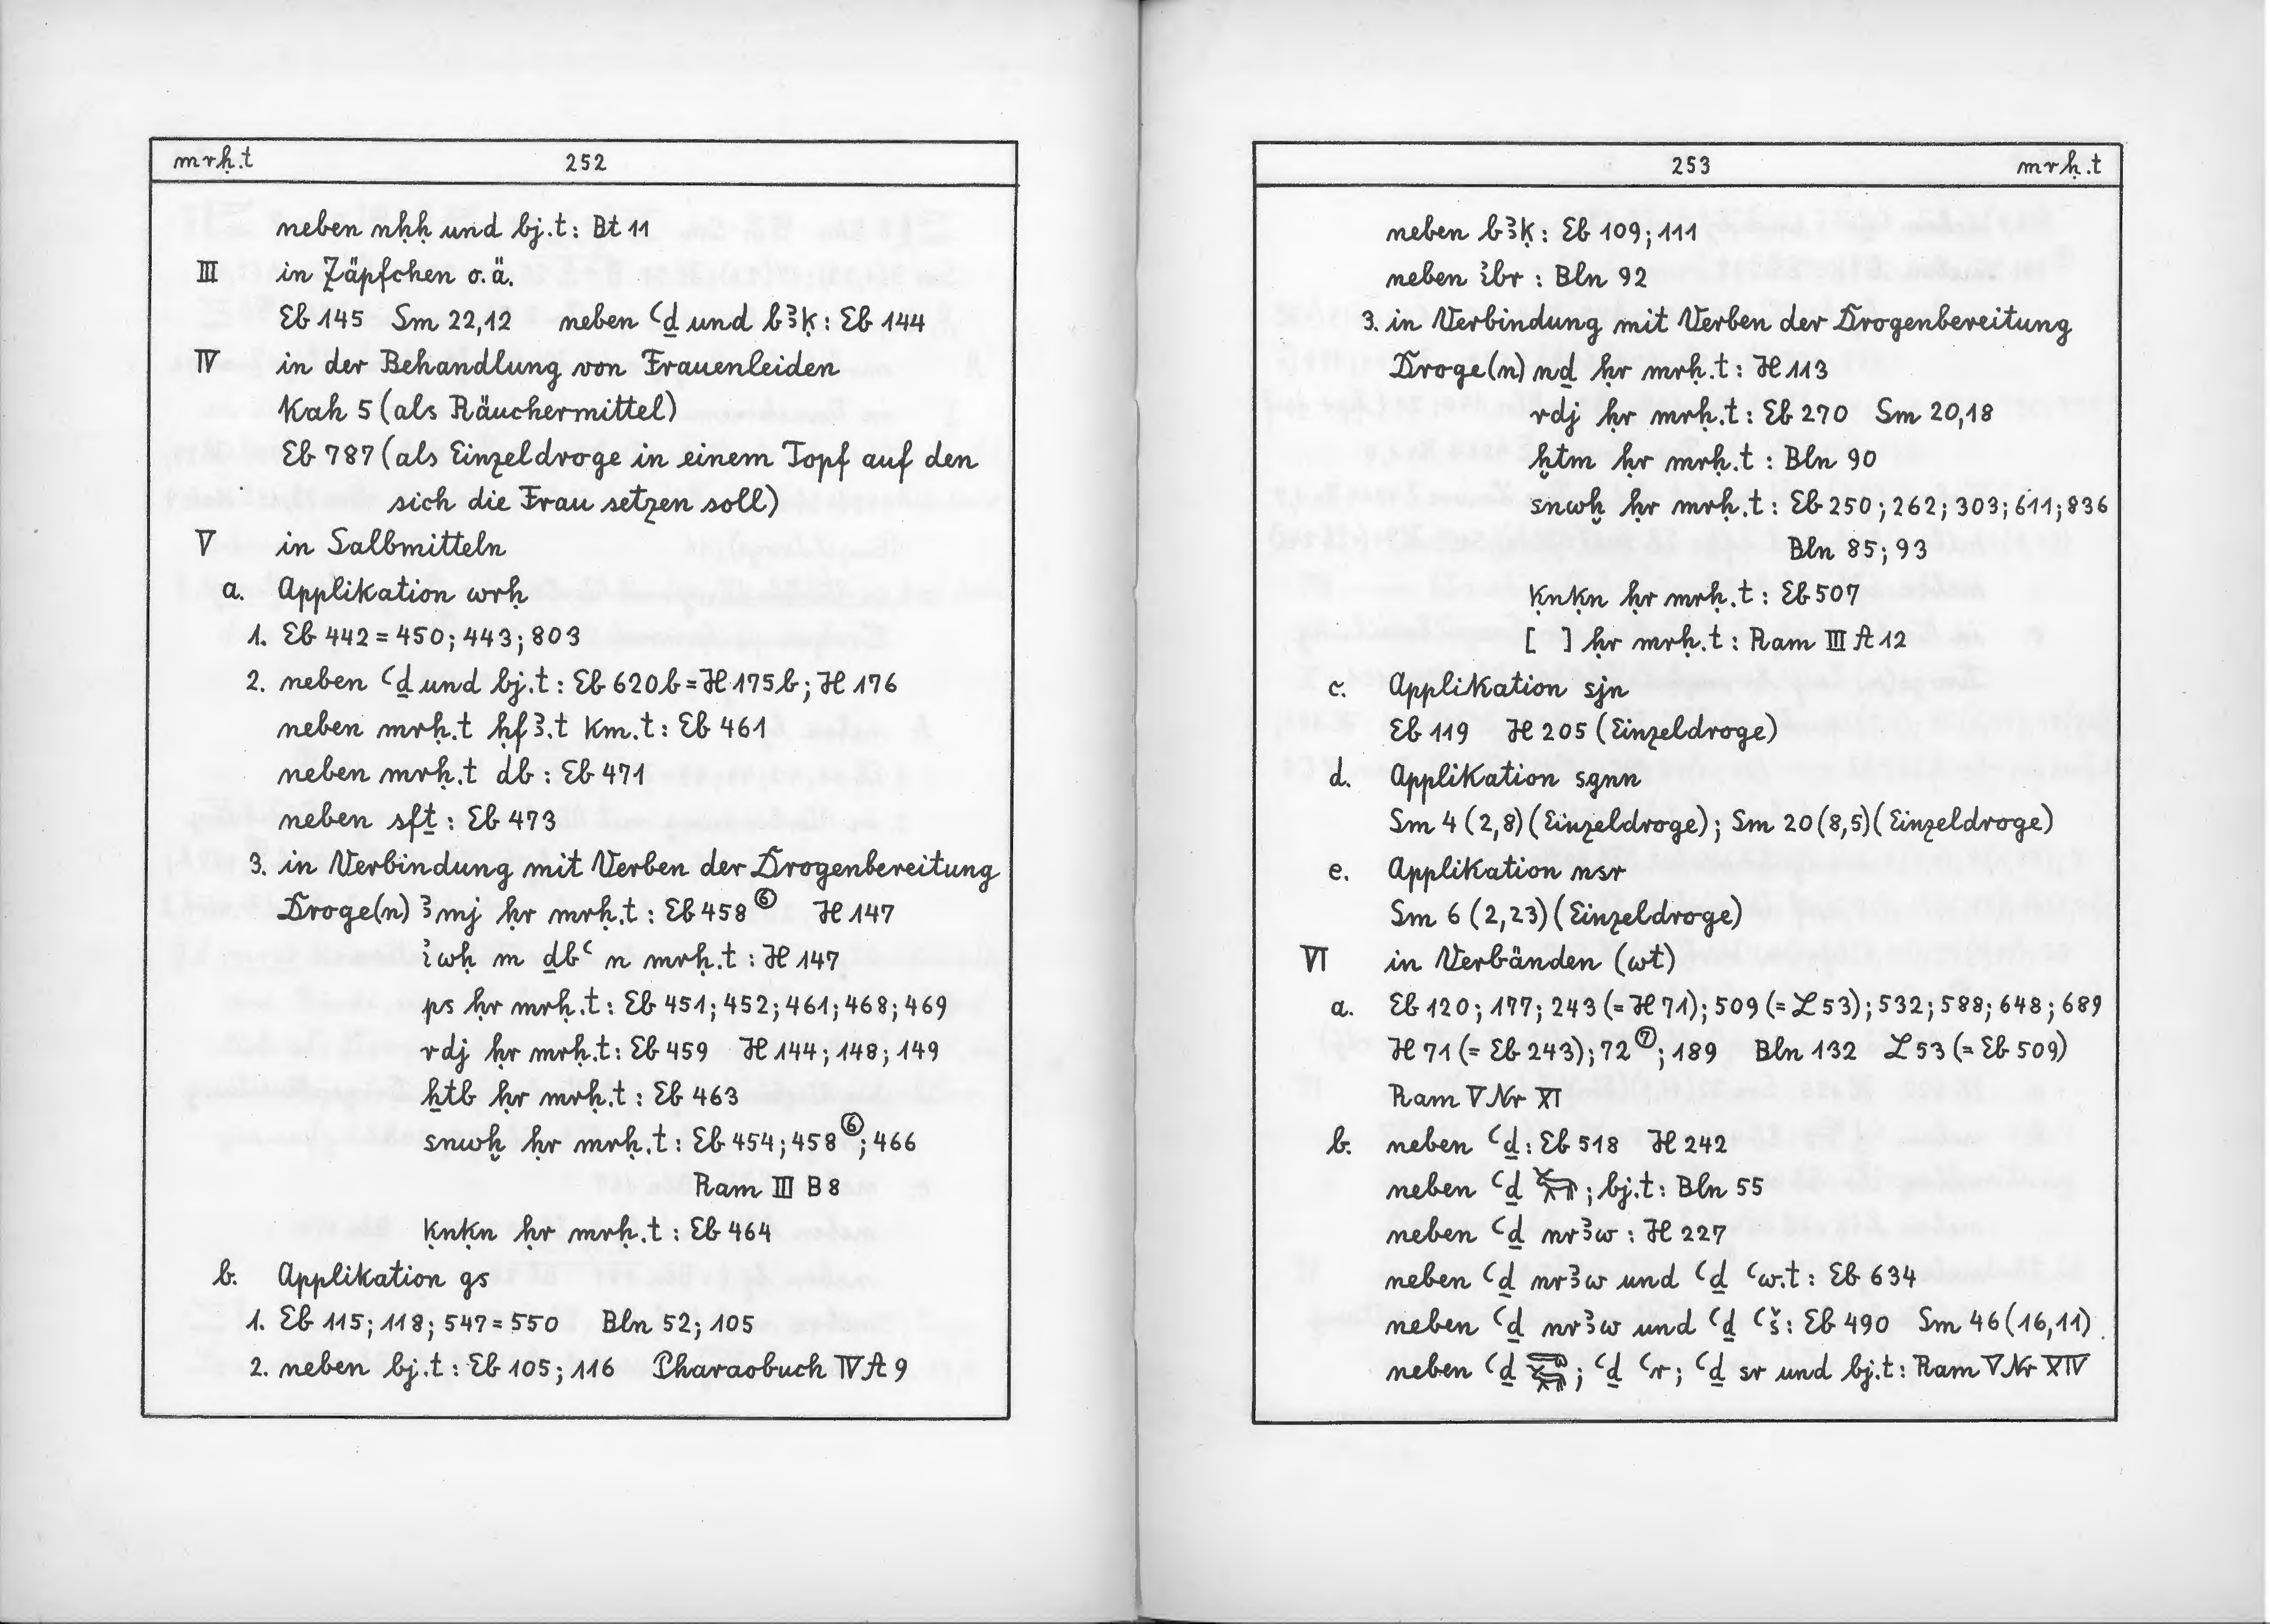 mrḥ.t 252
neben nḥḥ und bj.t: Bt 11
III in Zäpfchen o.ä.
Eb 145 Sm 22,12 neben ꜥḏ und bꜣḳ: Eb 144
IV in der Behandlung von Frauenleiden
Kah 5 (als Räuchermittel)
Eb 787 (als Einzeldroge in einem Topf auf den
sich die Frau setzen soll)
V in Salbmitteln
a. Applikation wrḥ
1. Eb 442 = 450; 443; 803
2. neben ꜥḏ und bj.t: Eb 620b = H 175b; H 176
neben mrḥ.t ḥfꜣ.t km.t: Eb 461
neben mrḥ.t db: Eb 471
neben sfṯ: Eb 473
3. in Verbindung mit Verben der Drogenbereitung
Droge(n) ꜣmj ḥr mrḥ.t: Eb 458⑥ H 147
ꞽwḥ m ḏbꜥ n mrḥ.t: H 147
ps ḥr mrḥ.t: Eb 451; 452; 461; 468; 469
rdj ḥr mrḥ.t: Eb 459 H 144; 148; 149
ẖtb ḥr mrḥ.t: Eb 463
snwḫ ḥr mrḥ.t: Eb 454; 458⑥; 466
Ram III B 8
ḳnḳn ḥr mrḥ.t: Eb 464
b. Applikation gs
1. Eb 115; 118; 547 = 550 Bln 52; 105
2. neben bj.t: Eb 105; 116 Pharaobuch IV A 9
253 mrḥ.t
neben bꜣḳ: Eb 109; 111
neben ꞽbr: Bln 92
3. in Verbindung mit Verben der Drogenbereitung
Droge(n) nḏ ḥr mrḥ.t: H 113
rdj ḥr mrḥ.t: Eb 270 Sm 20,18
ḫtm ḥr mrḥ.t: Bln 90
snwḫ ḥr mrḥ.t: Eb 250; 262; 303; 611; 836
Bln 85; 93
ḳnḳn ḥr mrḥ.t: Eb 507
[ ] ḥr mrḥ.t: Ram III A 12
c. Applikation sjn
Eb 119 H 205 (Einzeldroge)
d. Applikation sgnn
Sm 4 (2,8) (Einzeldroge); Sm 20 (8,5) (Einzeldroge)
e. Applikation nsr
Sm 6 (2,23) (Einzeldroge)
VI in Verbänden (wt)
a. Eb 120; 177; 243 (= H 71); 509 (= L 53); 532; 588; 648; 689
H 71 (= Eb 243); 72⑦; 189 Bln 132 L 53 (= Eb 509)
Ram V Nr XI
b. neben ꜥḏ: Eb 518 H 242
neben ꜥḏ ; bj.t: Bln 55
neben ꜥḏ nrꜣw: H 227
neben ꜥḏ nrꜣw und ꜥḏ ꜥw.t: Eb 634
neben ꜥḏ nrꜣw und ꜥḏ ꜥš: Eb 490 Sm 46 (16,11)
neben ꜥḏ ; ꜥḏ ꜥr; ꜥḏ sr und bj.t: Ram V Nr XIV